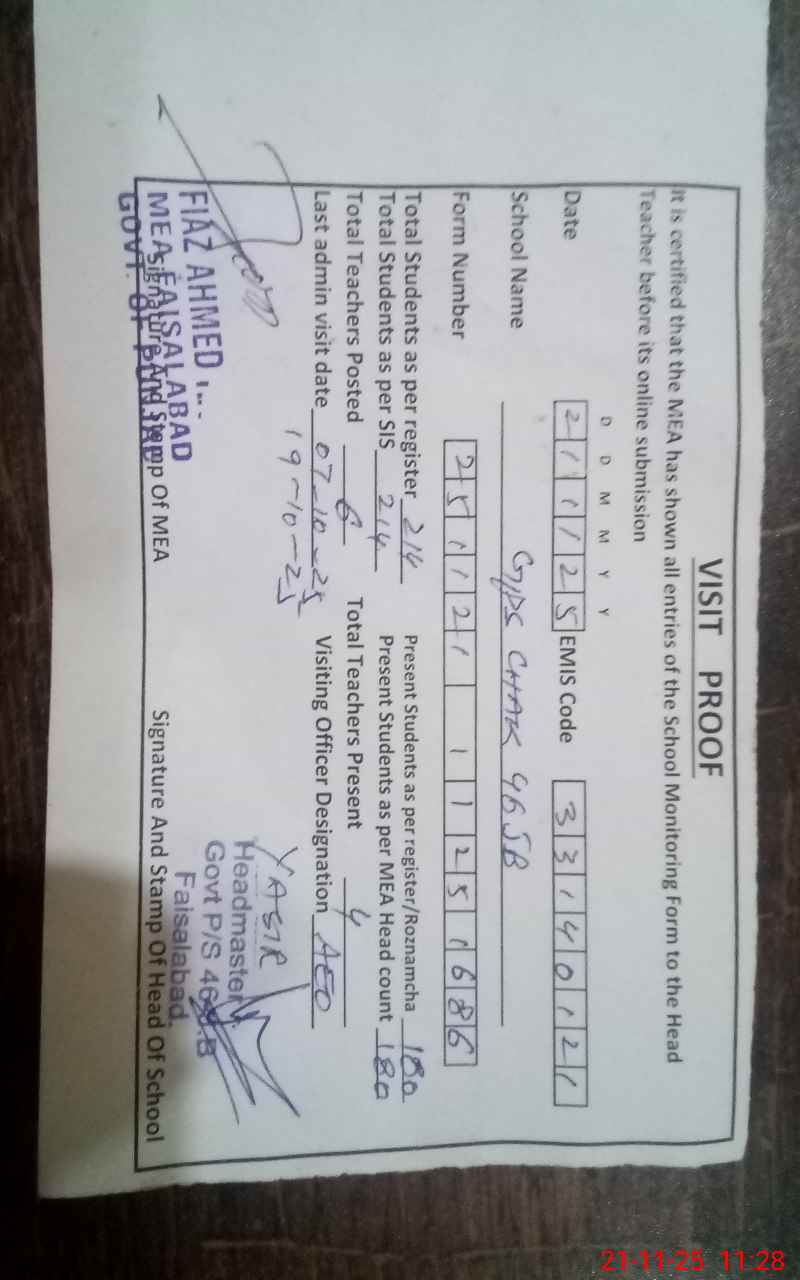 VISIT PROOF
It is certified that the MEA has shown all entries of the School Monitoring Form to the Head
Teacher before its online submission
D D M M Y Y
Date 2 1 1 1 2 5 EMIS Code 3 3 1 4 0 1 2 1
School Name GPS CHAK 46 JB
Form Number 2 5 1 1 2 1 1 1 2 5 1 6 8 6
Total Students as per register 214 Present Students as per register/Roznamcha 180
Total Students as per SIS 214 Present Students as per MEA Head count 180
Total Teachers Posted 6 Total Teachers Present 4
Last admin visit date 07-10-25 Visiting Officer Designation AEO
19-10-25
YASIR
FIAZ AHMED
MEA FAISALABAD
GOVT. OF PUNJAB
Headmaster
Govt P/S 46 J.B
Faisalabad.
Signature And Stamp Of MEA Signature And Stamp Of Head Of School
21-11-25 11:28